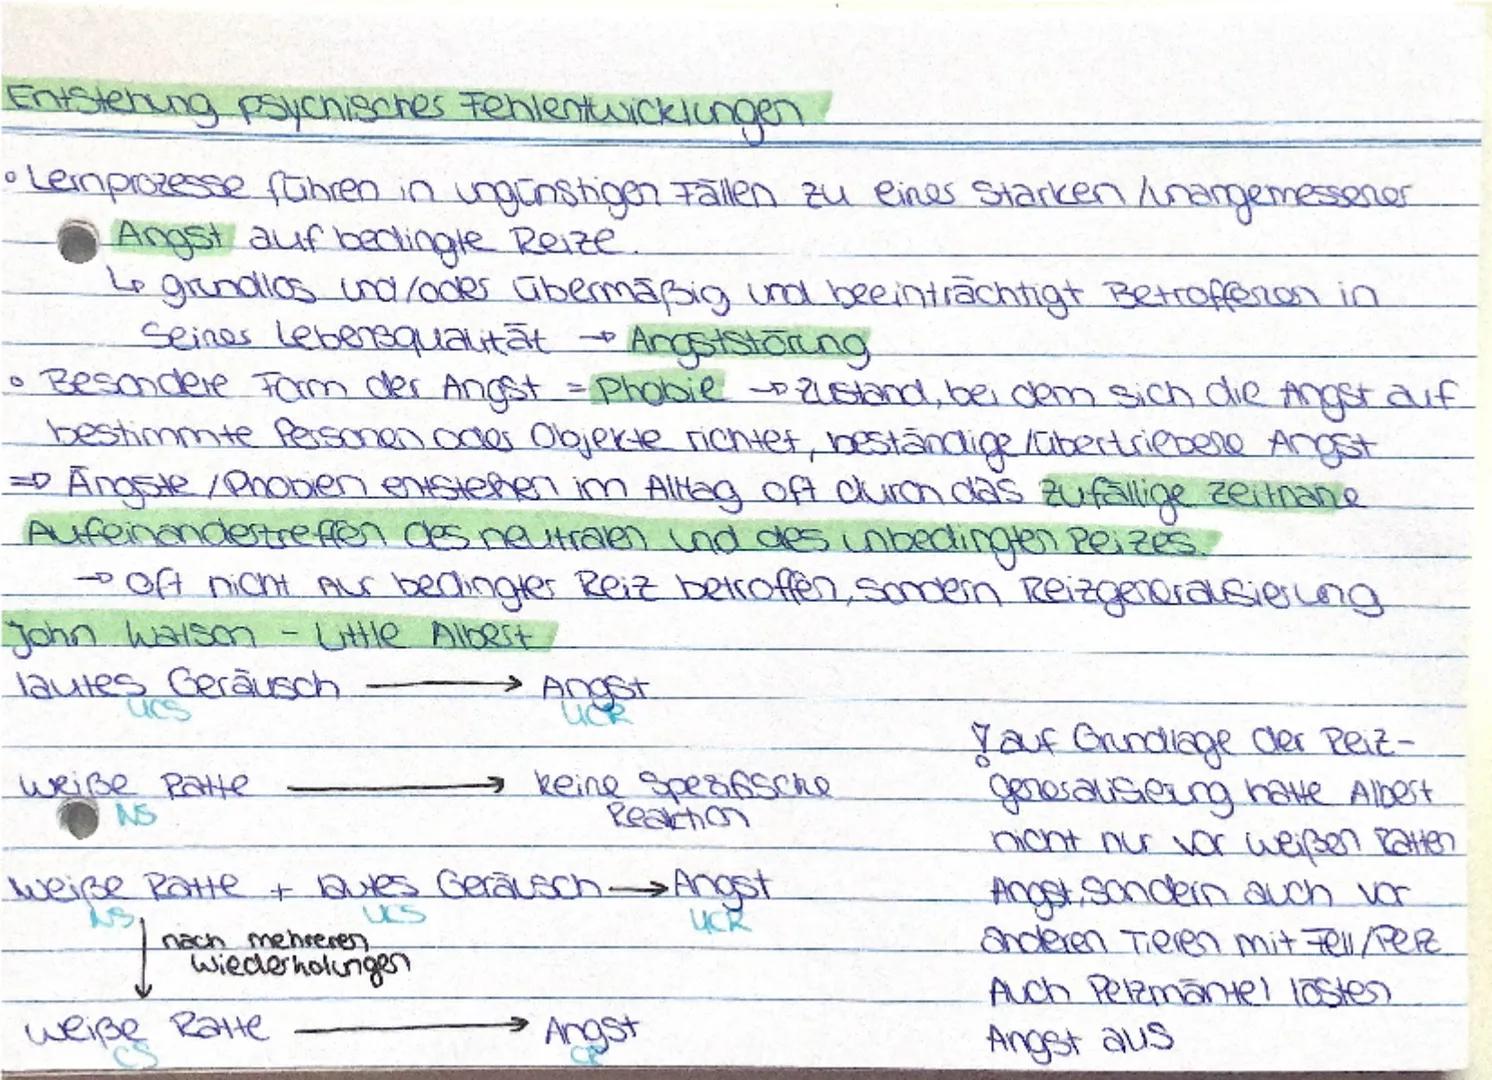 Entstehung psychischer Fehlentwicklungen
• Lernprozesse führen in ungünstigen Fällen zu einer starken/unangemessener
Angst auf bedingte Reize.
↳ grundlos und/oder übermäßig und beeinträchtigt Betroffenen in
seiner Lebensqualität → Angststörung
• Besondere Form der Angst = Phobie → Zustand, bei dem sich die Angst auf
bestimmte Personen oder Objekte richtet, beständige/übertriebene Angst
⇒ Ängste/Phobien entstehen im Alltag oft durch das zufällige zeitnahe
Aufeinandertreffen des neutralen und des unbedingten Reizes.
→ oft nicht nur bedingter Reiz betroffen, sondern Reizgeneralisierung
John Watson - Little Albert
lautes Geräusch → Angst
UCS UCR
weiße Ratte → keine spezifische
Reaktion
NS
weiße Ratte + lautes Geräusch → Angst
NS UCS UCR
↓ nach mehreren
Wiederholungen
weiße Ratte → Angst
CS CR
! auf Grundlage der Reiz-
generalisierung hatte Albert
nicht nur vor weißen Ratten
Angst, sondern auch vor
anderen Tieren mit Fell/Pelz
Auch Pelzmäntel lösten
Angst aus